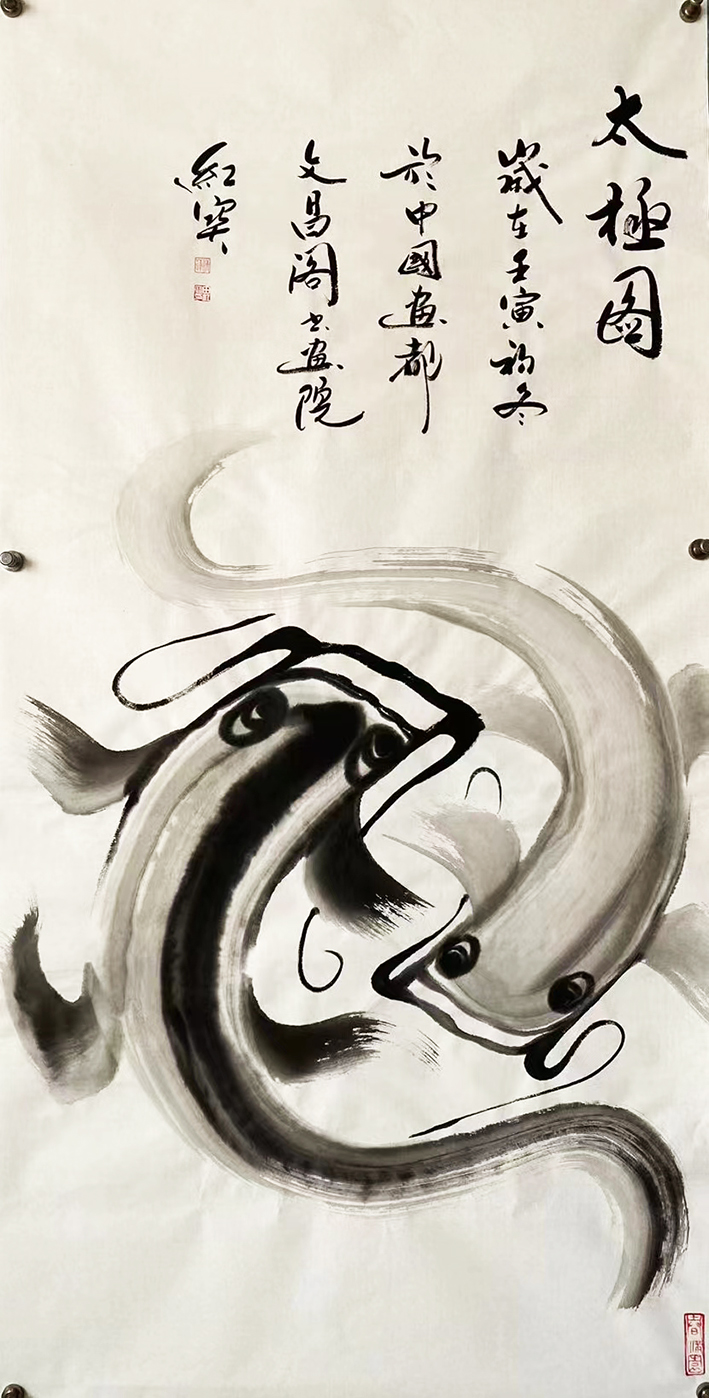 太極图
歲在壬寅初冬
於中國畫都
文昌阁书畫院
紅